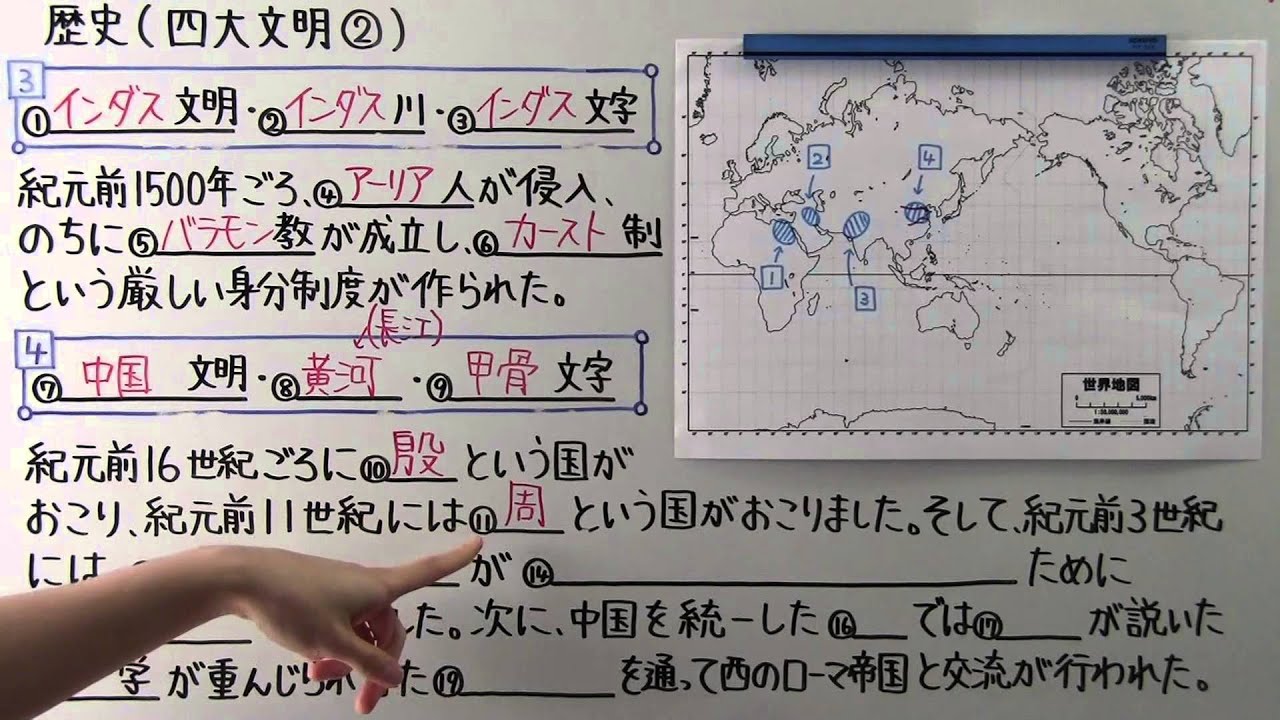 歴史(四大文明②)
3
①インダス文明・②インダス川・③インダス文字
紀元前1500年ごろ、④アーリア人が侵入、
のちに⑤バラモン教が成立し、⑥カースト制
という厳しい身分制度が作られた。
4
(長江)
⑦中国 文明・⑧黄河 ・⑨甲骨文字
紀元前16世紀ごろに⑩殷という国が
おこり、紀元前11世紀には⑪周という国がおこりました。そして、紀元前3世紀
には が⑭ ために
した。次に、中国を統一した⑯ では⑰ が説いた
学が重んじられ た⑲ を通って西のローマ帝国と交流が行われた。
2
4
1
3
世界地図